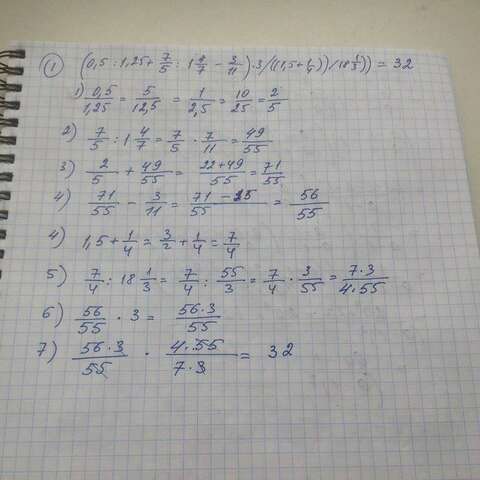 ① (0,5 : 1,25 + 7/5 : 1 4/7 − 3/11) · 3 / ((1,5 + 1/4)) / 18 1/3)) = 32
1) 0,5/1,25 = 5/12,5 = 1/2,5 = 10/25 = 2/5
2) 7/5 : 1 4/7 = 7/5 · 7/11 = 49/55
3) 2/5 + 49/55 = 22+49/55 = 71/55
4) 71/55 − 3/11 = 71 − 15/55 = 56/55
4) 1,5 + 1/4 = 3/2 + 1/4 = 7/4
5) 7/4 : 18 1/3 = 7/4 : 55/3 = 7/4 · 3/55 = 7·3/4·55
6) 56/55 · 3 = 56·3/55
7) 56·3/55 · 4·55/7·3 = 32